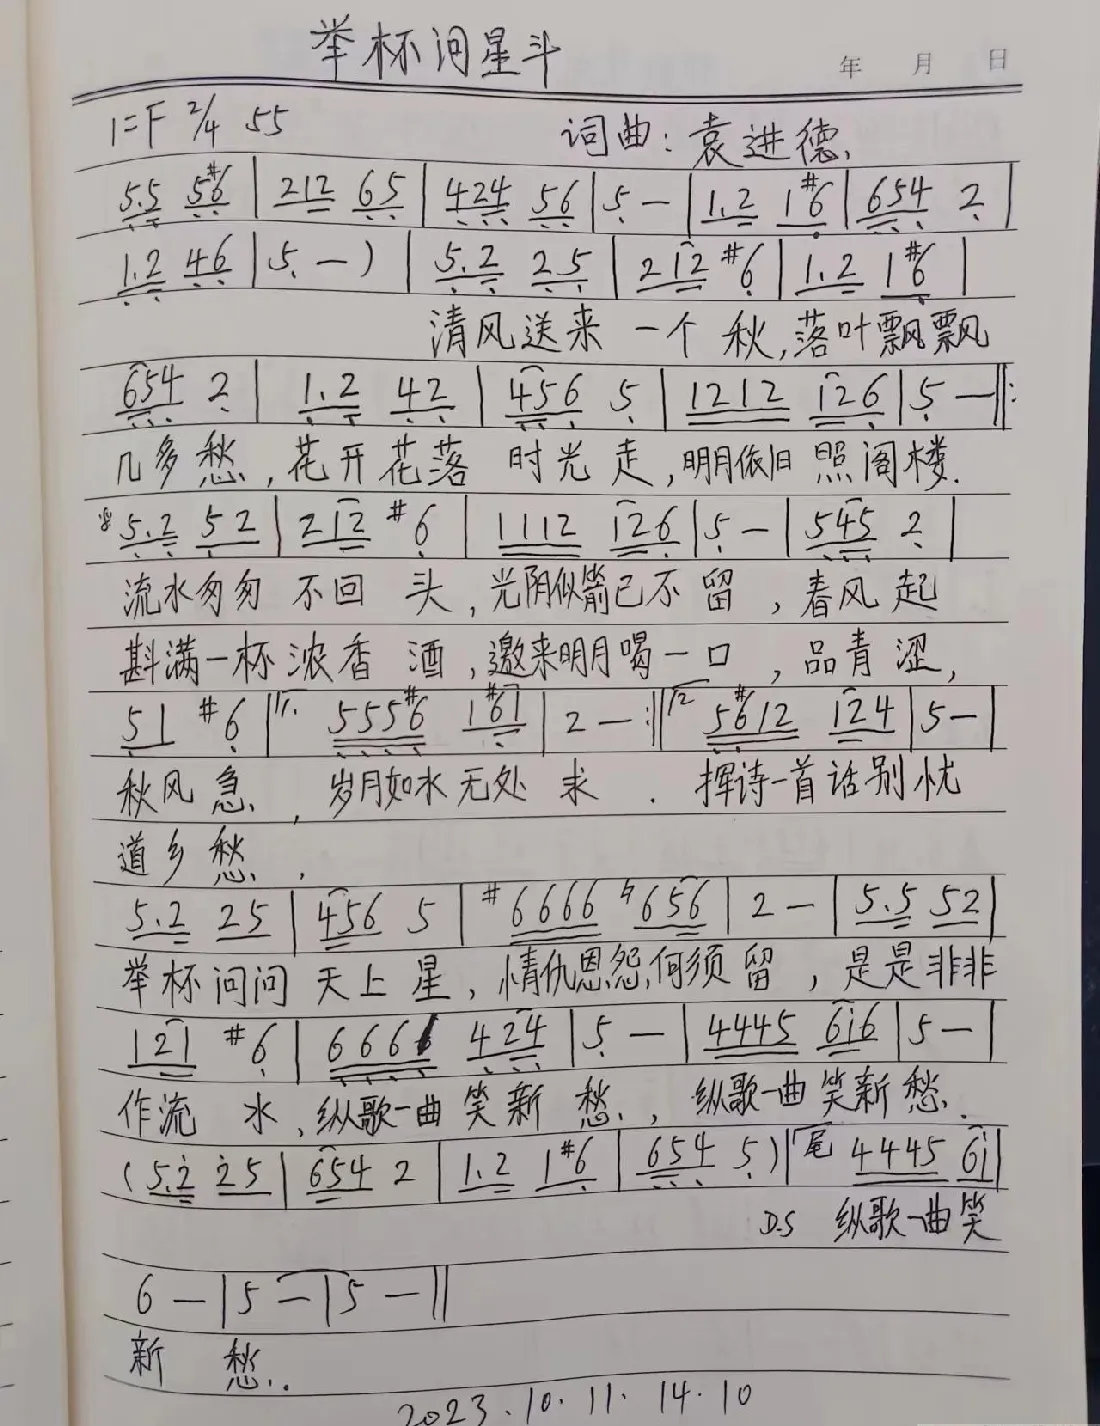 举杯问星斗
年 月 日
1=F 2/4 55
词曲：袁进德
5.5 5#6 | 212 65 | 424 56 | 5 — | 1.2 1#6 | 654 2 |
1.2 46 | 5 — ) | 5.2 25 | 212 #6 | 1.2 1#6 |
清风送来 一个 秋,落叶飘飘
654 2 | 1.2 42 | 456 5 | 1212 126 | 5 — ‖:
几多愁,花开花落 时光走,明月依旧 照阁楼.
5.2 52 | 212 #6 | 1112 126 | 5 — | 545 2 |
流水匆匆 不回 头,光阴似箭已不留,春风起
斟满一杯浓香 酒,邀来明月喝一口,品青涩,
51 #6 | 1. 555#6 1#61 | 2 — :‖ 2 5#612 124 | 5 — |
秋风急,岁月如水无处 求. 挥诗一首话别忧
道乡愁.
5.2 25 | 456 5 | #6666 ♮656 | 2 — | 5.5 52 |
举杯问问 天上星,情仇恩怨何须留,是是非非
121 #6 | 666 424 | 5 — | 4445 616 | 5 — |
作流 水,纵歌一曲笑新 愁.,纵歌一曲笑新愁.
( 5.2 25 | 654 2 | 1.2 1#6 | 654 5 ) | 尾 4445 61 |
D.S 纵歌一曲笑
6 — | 5 — | 5 — ‖
新 愁..
2023.10.11.14.10